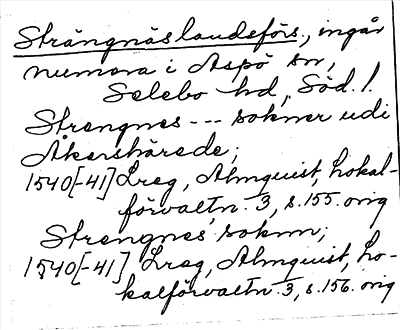 Strängnäs landsförs., ingår
numera i Aspö sn,
Selebo hd, Söd. l.
Strengnes --- sokner udi
Åkershärede;
1540[-41] Lreg, Almquist, Lokal-
förvaltn. 3, s. 155. orig
Strengnes soknn;
1540[-41] Lreg, Almquist, Lo-
kalförvaltn. 3, s. 156. orig